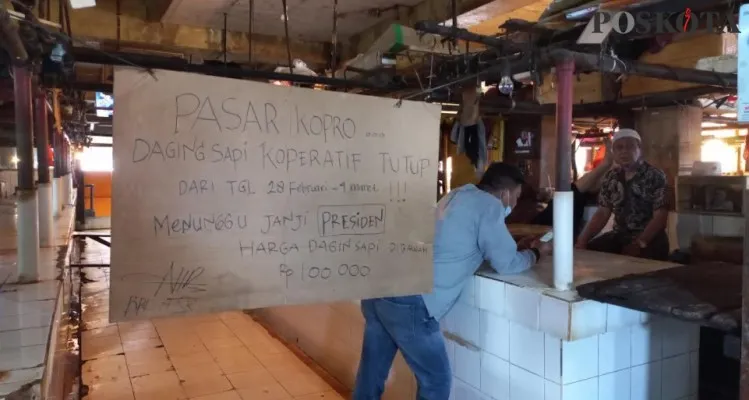 POSKOTA
PASAR KOPRO ....
DAGING SAPI KOPERATIF TUTUP
DARI TGL 28 Februari - 4 maret !!!
MENUNGGU JANJI PRESIDEN
HARGA DAGIN SAPI
Rp 100 000